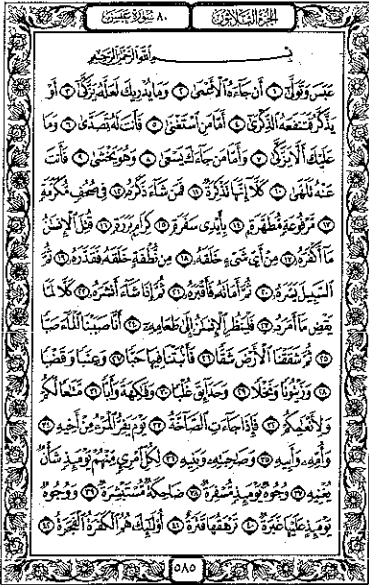 الجزء الثلاثون ٨٠ سورة عبس
بسم الله الرحمن الرحيم
عَبَسَ وَتَوَلَّىٰ ١ أَن جَاءَهُ الْأَعْمَىٰ ٢ وَمَا يُدْرِيكَ لَعَلَّهُ يَزَّكَّىٰ ٣ أَوْ
يَذَّكَّرُ فَتَنفَعَهُ الذِّكْرَىٰ ٤ أَمَّا مَنِ اسْتَغْنَىٰ ٥ فَأَنتَ لَهُ تَصَدَّىٰ ٦ وَمَا
عَلَيْكَ أَلَّا يَزَّكَّىٰ ٧ وَأَمَّا مَن جَاءَكَ يَسْعَىٰ ٨ وَهُوَ يَخْشَىٰ ٩ فَأَنتَ
عَنْهُ تَلَهَّىٰ ١٠ كَلَّا إِنَّهَا تَذْكِرَةٌ ١١ فَمَن شَاءَ ذَكَرَهُ ١٢ فِي صُحُفٍ مُّكَرَّمَةٍ
١٣ مَّرْفُوعَةٍ مُّطَهَّرَةٍ ١٤ بِأَيْدِي سَفَرَةٍ ١٥ كِرَامٍ بَرَرَةٍ ١٦ قُتِلَ الْإِنسَانُ
مَا أَكْفَرَهُ ١٧ مِنْ أَيِّ شَيْءٍ خَلَقَهُ ١٨ مِن نُّطْفَةٍ خَلَقَهُ فَقَدَّرَهُ ١٩ ثُمَّ
السَّبِيلَ يَسَّرَهُ ٢٠ ثُمَّ أَمَاتَهُ فَأَقْبَرَهُ ٢١ ثُمَّ إِذَا شَاءَ أَنشَرَهُ ٢٢ كَلَّا لَمَّا
يَقْضِ مَا أَمَرَهُ ٢٣ فَلْيَنظُرِ الْإِنسَانُ إِلَىٰ طَعَامِهِ ٢٤ أَنَّا صَبَبْنَا الْمَاءَ صَبًّا
٢٥ ثُمَّ شَقَقْنَا الْأَرْضَ شَقًّا ٢٦ فَأَنبَتْنَا فِيهَا حَبًّا ٢٧ وَعِنَبًا وَقَضْبًا
٢٨ وَزَيْتُونًا وَنَخْلًا ٢٩ وَحَدَائِقَ غُلْبًا ٣٠ وَفَاكِهَةً وَأَبًّا ٣١ مَّتَاعًا لَّكُمْ
وَلِأَنْعَامِكُمْ ٣٢ فَإِذَا جَاءَتِ الصَّاخَّةُ ٣٣ يَوْمَ يَفِرُّ الْمَرْءُ مِنْ أَخِيهِ ٣٤
وَأُمِّهِ وَأَبِيهِ ٣٥ وَصَاحِبَتِهِ وَبَنِيهِ ٣٦ لِكُلِّ امْرِئٍ مِّنْهُمْ يَوْمَئِذٍ شَأْنٌ
يُغْنِيهِ ٣٧ وُجُوهٌ يَوْمَئِذٍ مُّسْفِرَةٌ ٣٨ ضَاحِكَةٌ مُّسْتَبْشِرَةٌ ٣٩ وَوُجُوهٌ
يَوْمَئِذٍ عَلَيْهَا غَبَرَةٌ ٤٠ تَرْهَقُهَا قَتَرَةٌ ٤١ أُولَٰئِكَ هُمُ الْكَفَرَةُ الْفَجَرَةُ ٤٢
٥٨٥